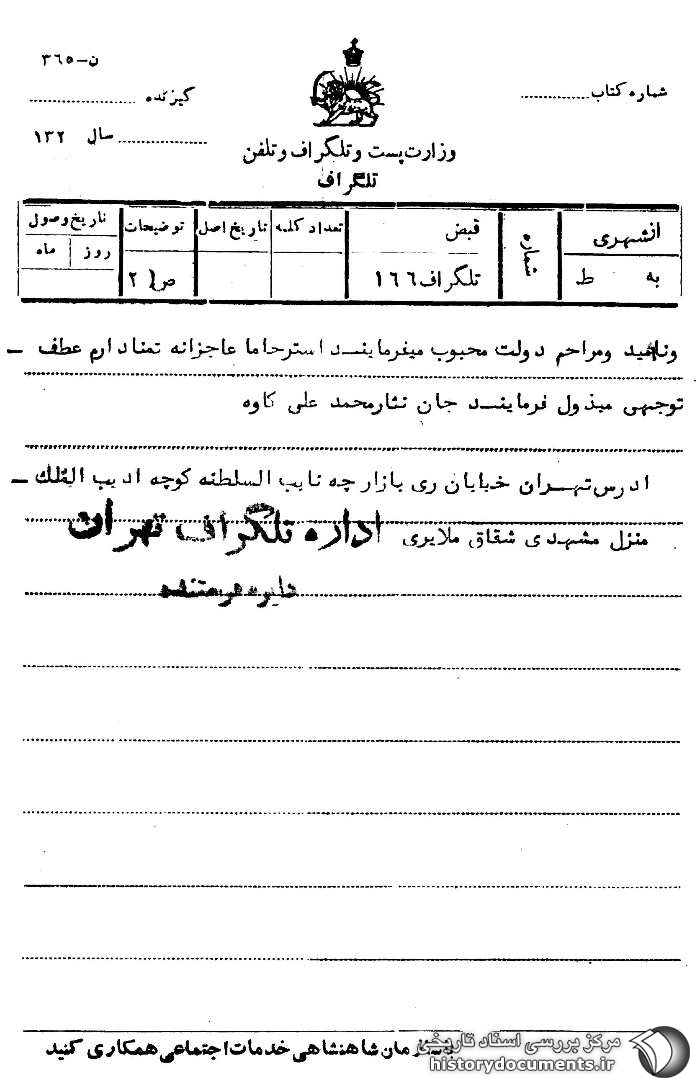 ن-۳٦٥
شماره کتاب
گیرنده
سال ۱۳۲
وزارت پست و تلگراف و تلفن
تلگراف
ازشهری
به ط
شماره
قبض
تلگراف ۱٦٦
تعداد کلمه
تاریخ اصل
توضیحات
ص ۲
تاریخ وصول
روز ماه
ومراحم دولت محبوب میفرمایند استرحاما عاجزانه تمنادارم عطف –
توجهی مبذول فرمایند جان نثارمحمد علی کاوه
ادرس تهران خیابان ری بازار چه نایب السلطنه کوچه ادیب الملک –
منزل مشهدی شقاق ملایری
اداره تلگراف تهران
دایره فرستنده
شاهنشاهی خدمات اجتماعی همکاری کنید
مرکز بررسی اسناد تاریخی
historydocuments.ir